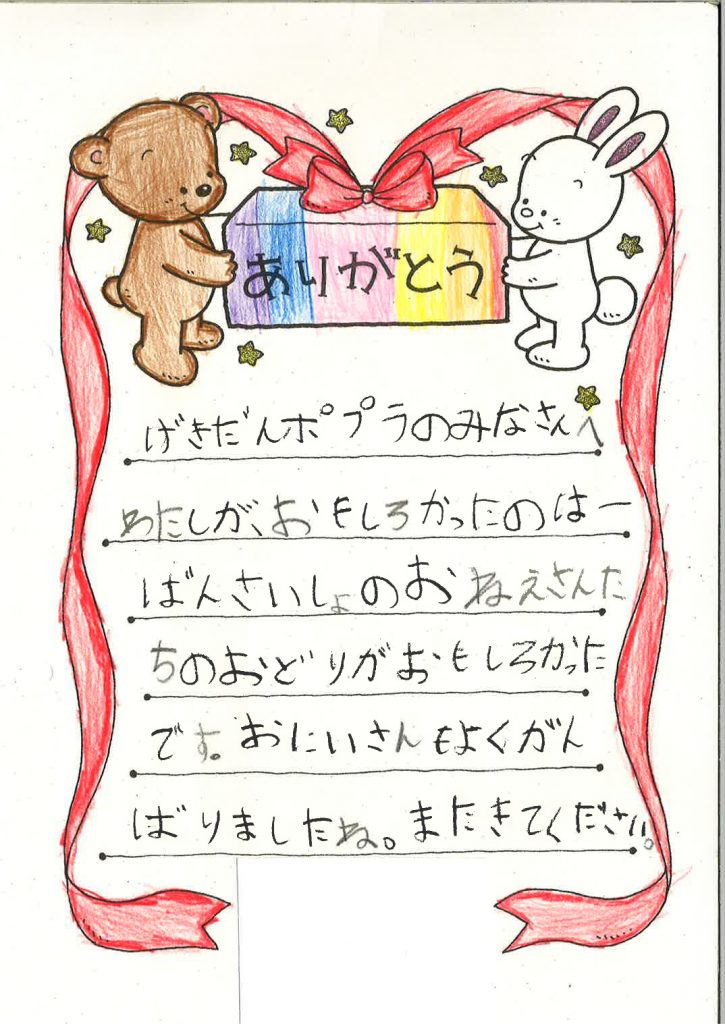 ありがとう
げきだんポプラのみなさんへ
わたしが、おもしろかったのは一
ばんさいしょのおねえさんた
ちのおどりがおもしろかった
です。おにいさんもよくがん
ばりましたね。またきてください。